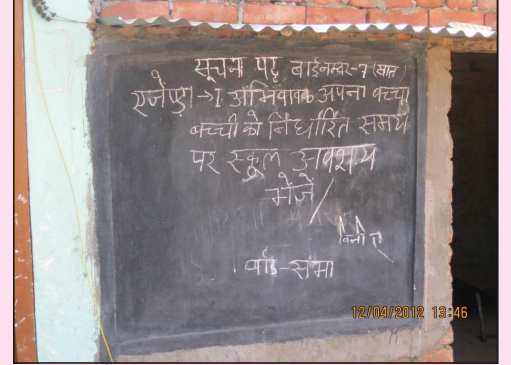 सूचना पट्ट वार्ड नम्बर-7 (सात)
एजेण्डा → 1 अभिवावक अपना बच्चा
बच्ची को निर्धारित समय
पर स्कूल अवश्य
भेजें/
वार्ड-सभा
12/04/2012 13:46